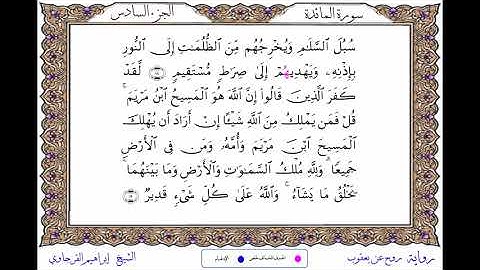 سورة المائدة
الجزء السادس
سُبُلَ ٱلسَّلَٰمِ وَيُخْرِجُهُم مِّنَ ٱلظُّلُمَٰتِ إِلَى ٱلنُّورِ
بِإِذْنِهِۦ وَيَهْدِيهُمْ إِلَىٰ صِرَٰطٍ مُّسْتَقِيمٍ لَّقَدْ
كَفَرَ ٱلَّذِينَ قَالُوٓا۟ إِنَّ ٱللَّهَ هُوَ ٱلْمَسِيحُ ٱبْنُ مَرْيَمَ ۚ
قُلْ فَمَن يَمْلِكُ مِنَ ٱللَّهِ شَيْـًٔا إِنْ أَرَادَ أَن يُهْلِكَ
ٱلْمَسِيحَ ٱبْنَ مَرْيَمَ وَأُمَّهُۥ وَمَن فِى ٱلْأَرْضِ
جَمِيعًا ۗ وَلِلَّهِ مُلْكُ ٱلسَّمَٰوَٰتِ وَٱلْأَرْضِ وَمَا بَيْنَهُمَا ۚ
يَخْلُقُ مَا يَشَآءُ ۚ وَٱللَّهُ عَلَىٰ كُلِّ شَىْءٍ قَدِيرٌ
رواية روح عن يعقوب
الإدغام
الشيخ إبراهيم الفرجاوي